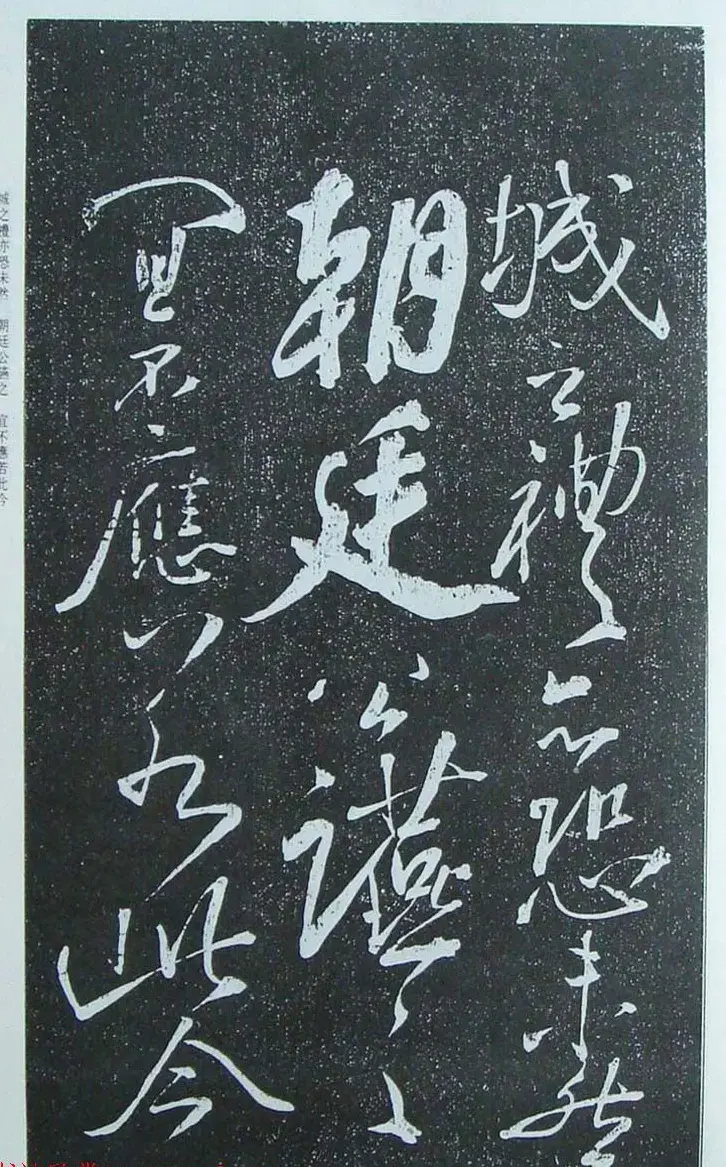 城之禮亦恐未然
朝廷公讌之
宜不應若此今
城之禮亦恐未然 朝廷公讌之 宜不應若此今